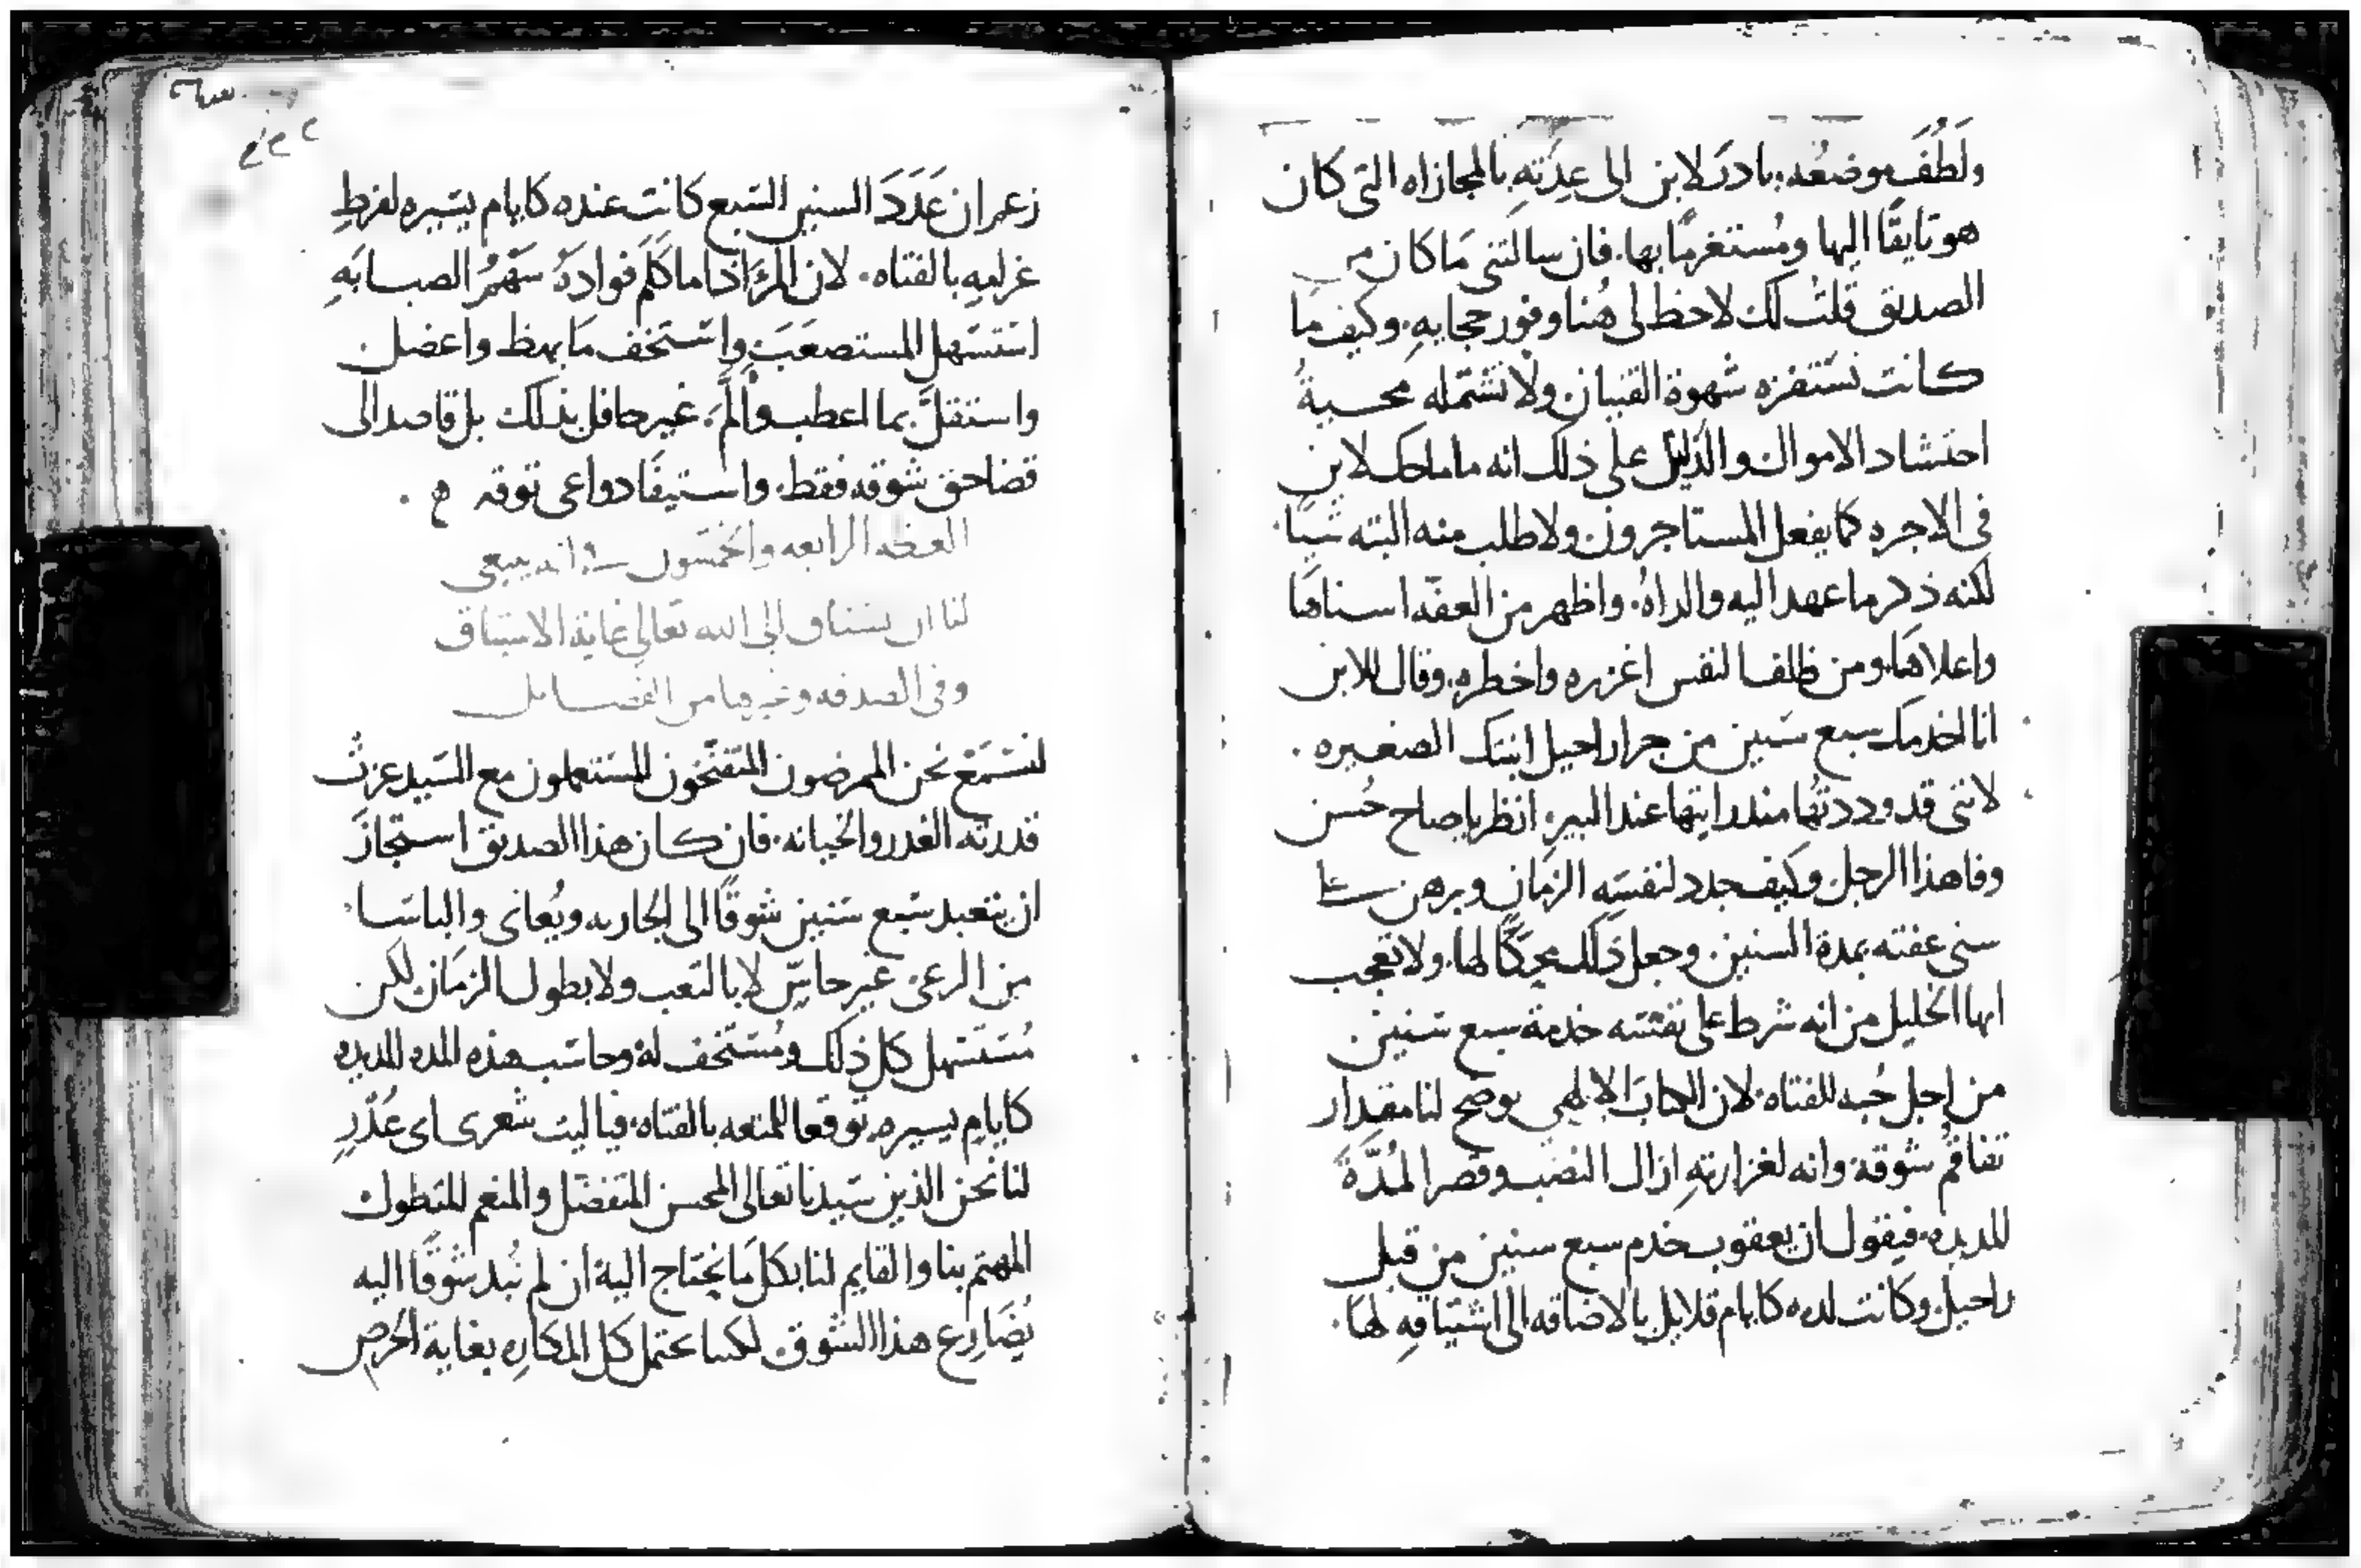 ولَطُفَ موضعُه. بادرَ لابن الى عِدَتهِ بالمجازاه التى كان
هو تايقًا اليها ومُستغرمًا بها. فان سالتنى مَا كان من
الصديق قلتُ لك لاحظ لى هُنا وفور حجايهِ. وكيف ما
كانت تستفزه شهوة القنيان ولا تشتمله محسبةُ
احتشاد الاموال والدليل على ذلك انه ما ماحك لابن
فى الاجره كما يفعل المستاجرون ولا طلب منه البته شيًا.
لكنه ذكر ما عهد اليه والداهُ. واظهر من العفّه اسناها
واعلاها. ومن ظلف النفس اغزره واخطره. وقال للابن
انا اخدمك سبع سَنين من جرا راحيل ابنتك الصغيره.
لاننى قد وددتها منذ رايتها عند البير. انظر ياصاح حُسن
وفا هذا الرجل وكيف حدد لنفسَه الزمَان وبرهن على
سنى عفته بمدة السنين. وجعل ذلك محكًا لها. ولا تعجب
ايها الخليل من انه شرط على نفسَه خدمة سبع سَنين
من اجل حُبه للفتاه. لان الكتابَ الالهى يوضح لنا مقدار
تفاقُم شوقه. وانه لغزارتهِ ازال النصب وقصر المُدّةَ
المديده. فيقول ان يعقوب خدم سبع سنين من قبل
راحيل. وكانت لديه كايام قلايل بالاضافه الى اشتياقهِ لهَا.
زعم ان عَدَدَ السنين السَبع كانت عنده كايام يسَيره لفرطِ
غرامِهِ بالفتاه. لان المرَء اذا ما كَلَم فوادهَ سَهمُ الصبابَهِ
استسَهل المستصعَبَ واستخف مَا بهظ واعضل
واستقلَّ بما اعطب وآلمَ. غير حافل بذلك بل قاصد الى
قضا حق شوقه فقط. واستيفَا دواعى توقه
العظه الرابعه والخمسَون فى انه ينبغى
لنا ان نشتاق الى الله تعالى غاية الاشتياق
وفى الصدقه وغيرها من الفضايل
لنسَتمَع نحن الممرضون المتفتّخون المستعملون مع السَيد عزت
قدرته الغدر والخيانه. فان كان هذا الصديق استجازَ
ان يتعبد سَبع سَنين شوقًا الى الجاريه ويُعانى والباسَا
من الرعى غير حاسّ لا بالتعب ولا بطول الزمَان لكن
مُسَتسَهل كل ذلك ومُستخف له. وحاسَب هذه المده المديده
كايام يسيره توقعا للمتعه بالفتاه. فيا ليت شعرى اى عُذرٍ
لنا نحن الذين سَيدنا تعالى المحسن المتفضل والمنعم المتطول
المهتم بنا والقايم لنا بكل مَا نحتاج اليه. ان لم نُبد شوقًا اليه
يُضَارع هذا الشوق. لكننا نحتمل كل المكاره بغاية الحرص